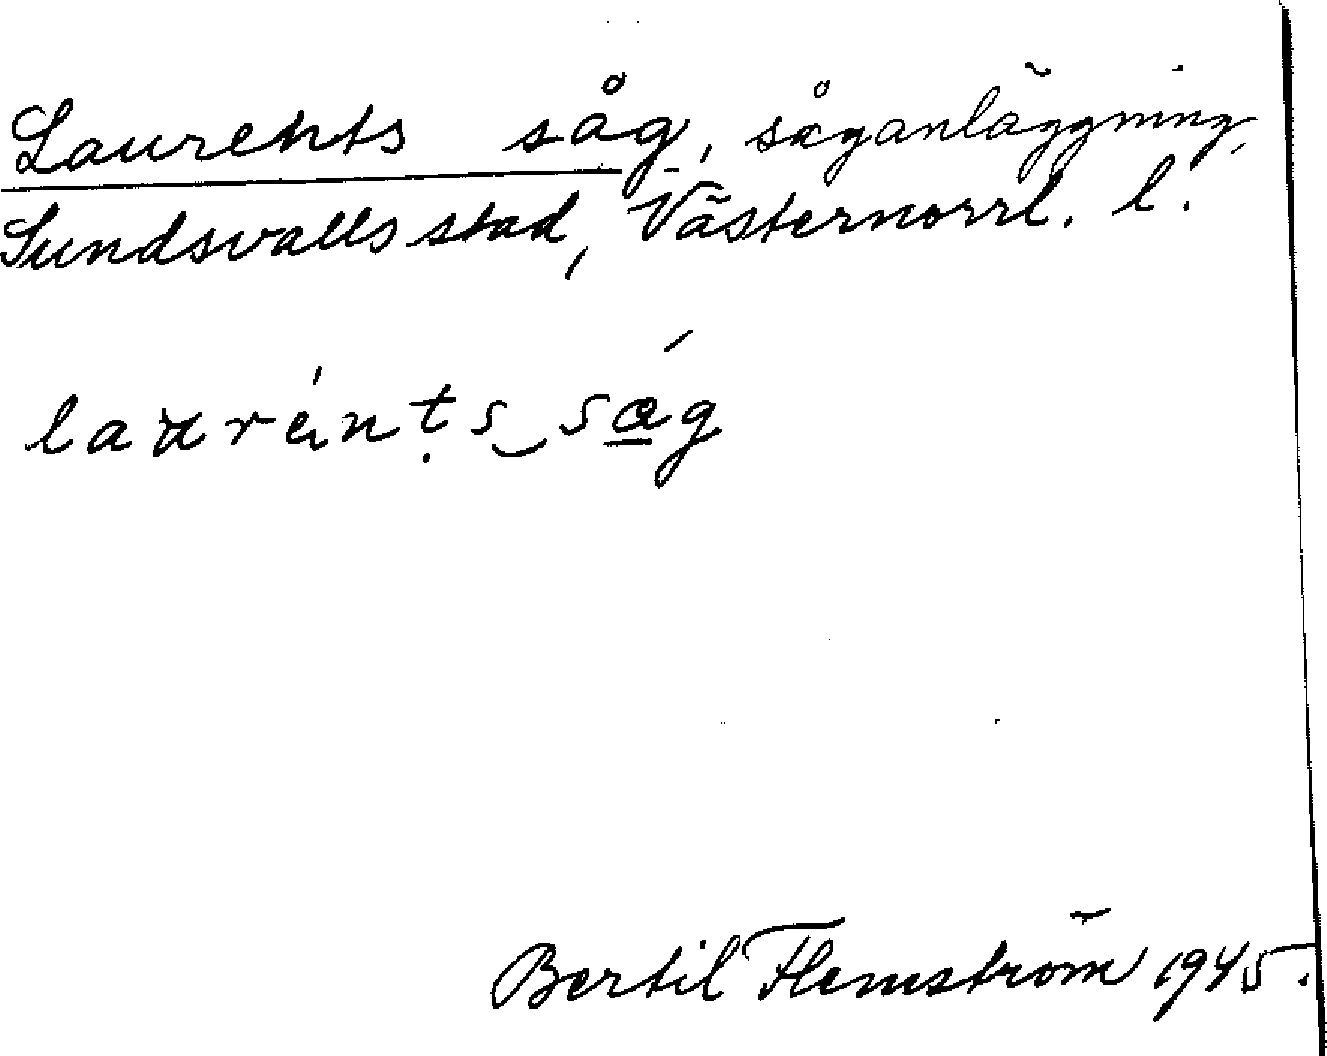 Laurents såg, såganläggning,
Sundsvalls stad, Västernorrl. l.
Bertil Flemström 1945.